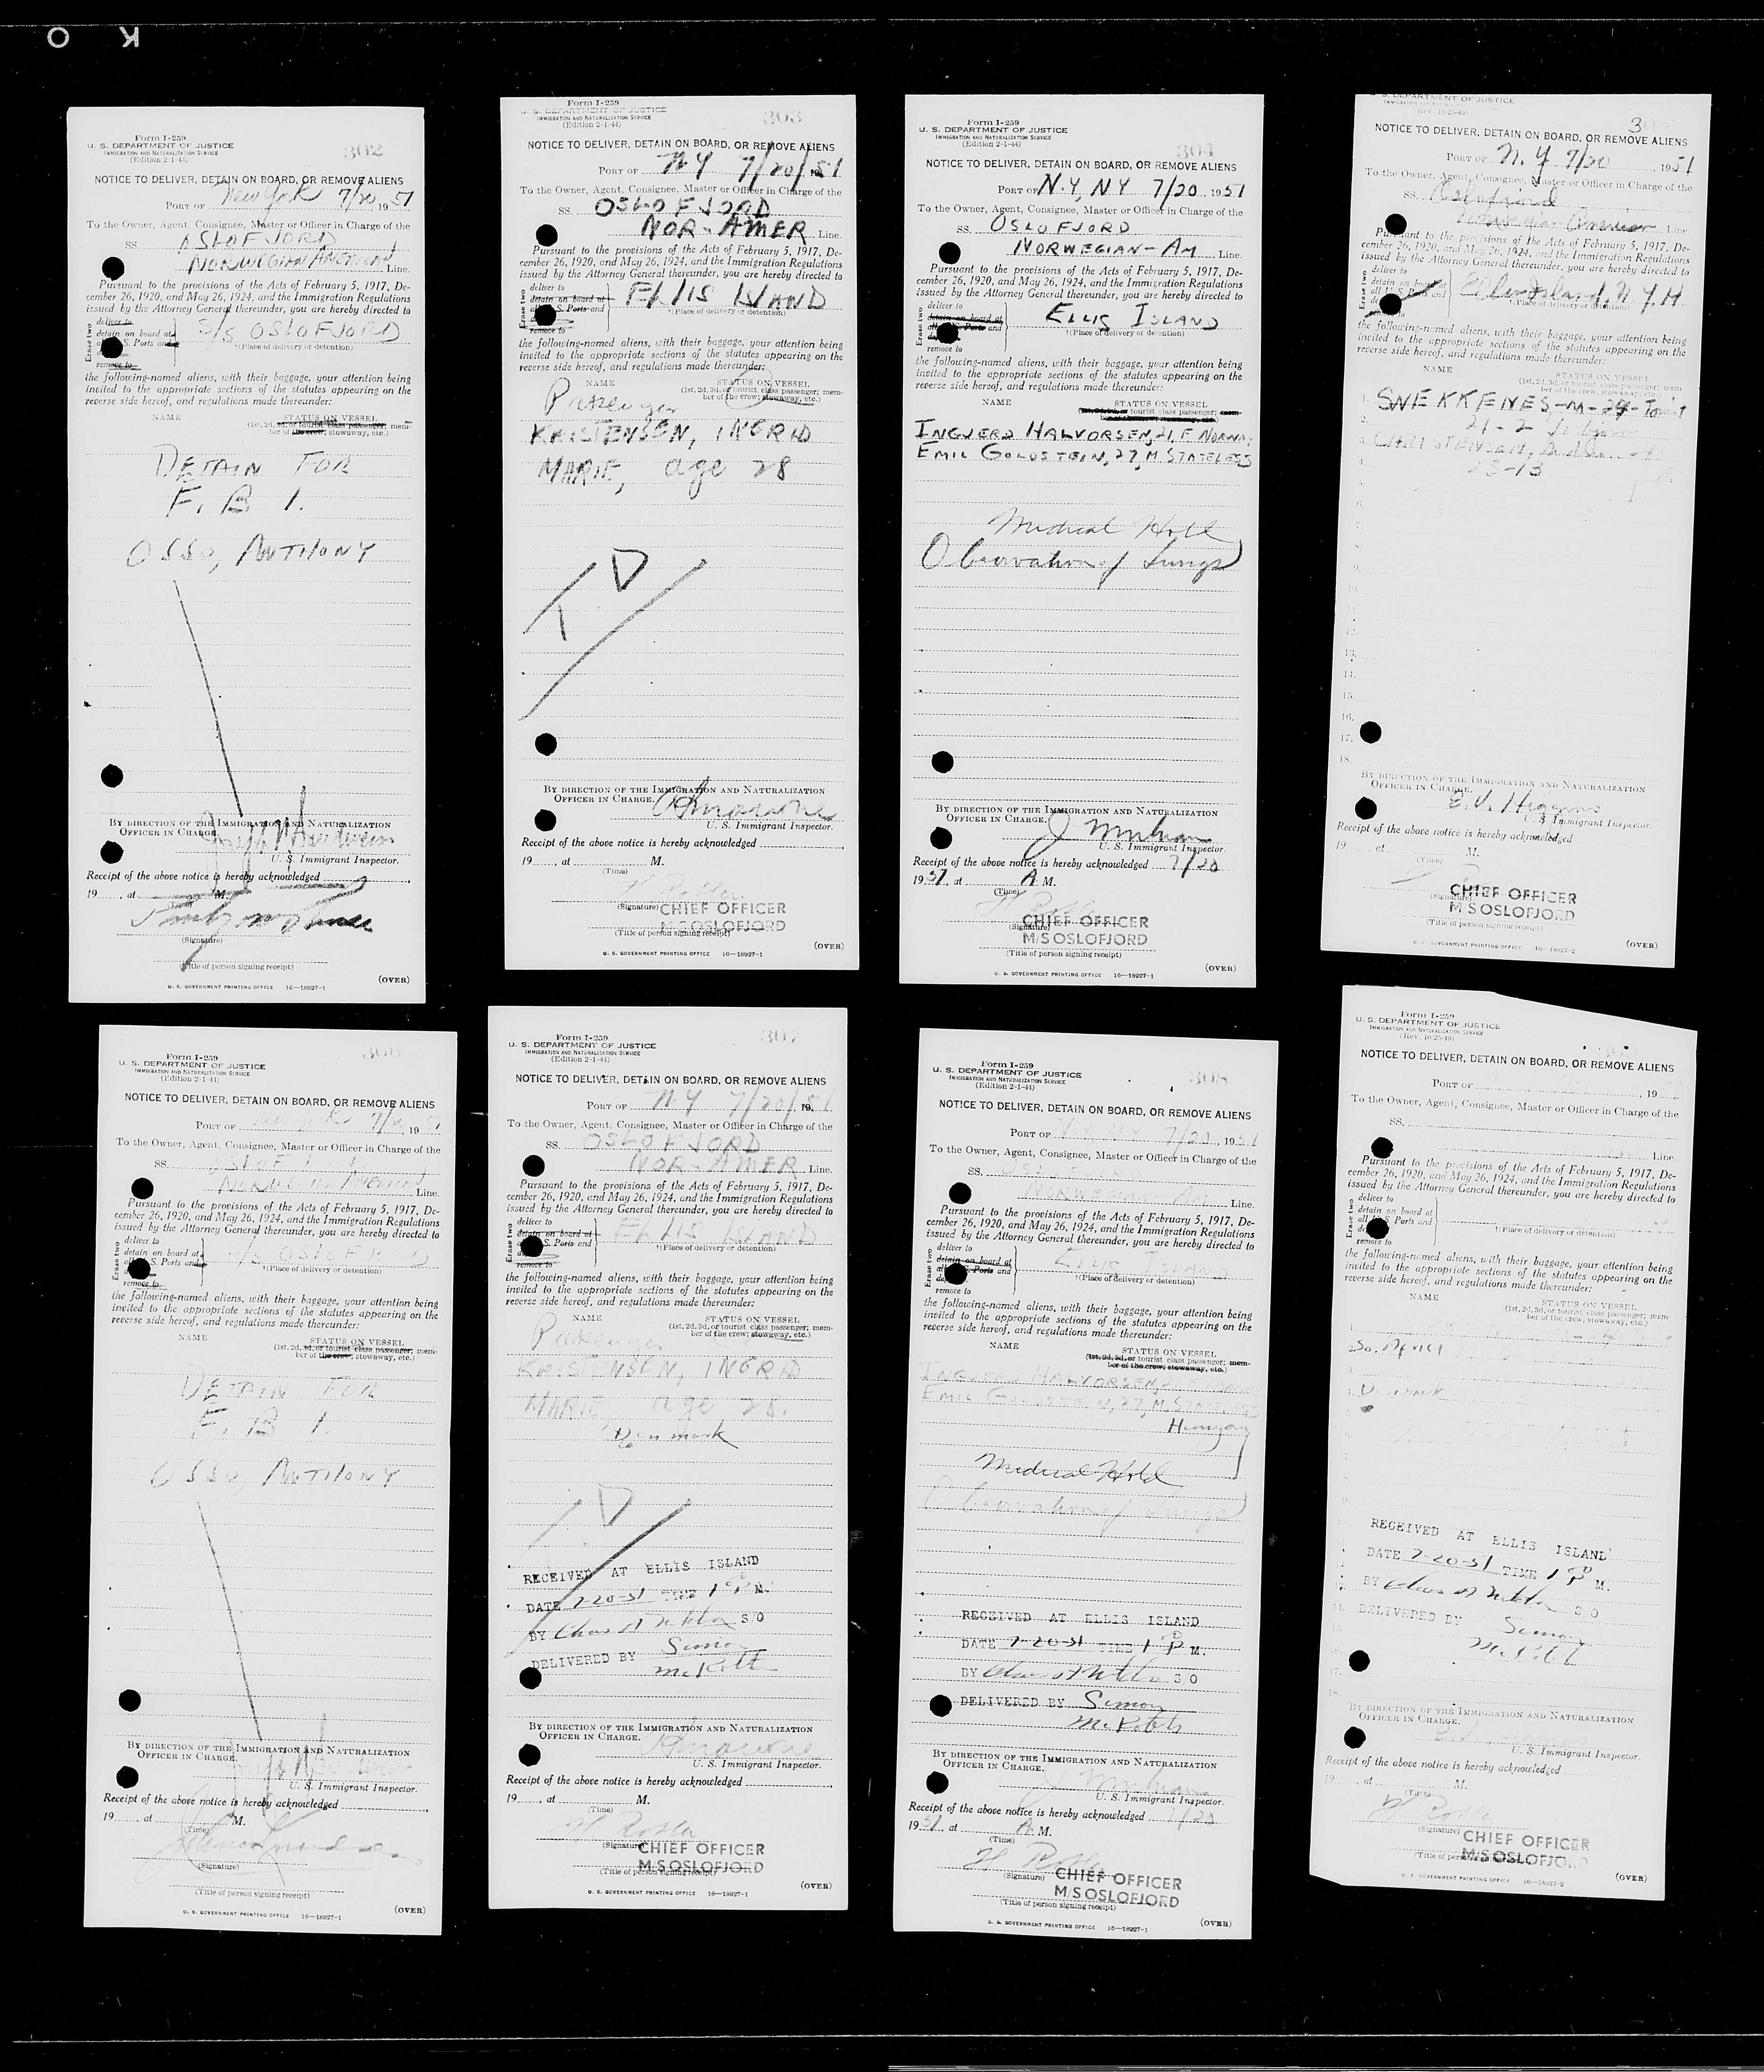 O K
Form I-259
U. S. DEPARTMENT OF JUSTICE
IMMIGRATION AND NATURALIZATION SERVICE
(Edition 2-1-44)
302
NOTICE TO DELIVER, DETAIN ON BOARD, OR REMOVE ALIENS
PORT OF New York 7/20 1951
To the Owner, Agent, Consignee, Master or Officer in Charge of the
SS. OSLOFJORD
NORWEGIAN AMERICAN Line.
Pursuant to the provisions of the Acts of February 5, 1917, De-
cember 26, 1920, and May 26, 1924, and the Immigration Regulations
issued by the Attorney General thereunder, you are hereby directed to
Erase two
deliver to
detain on board at S/S OSLOFJORD
all U.S. Ports and (Place of delivery or detention)
remove to
the following-named aliens, with their baggage, your attention being
invited to the appropriate sections of the statutes appearing on the
reverse side hereof, and regulations made thereunder:
NAME STATUS ON VESSEL
(1st, 2d, 3d, or tourist class passenger; mem-
ber of the crew; stowaway, etc.)
DETAIN FOR
F. B I.
OSSO, ANTHONY
BY DIRECTION OF THE IMMIGRATION AND NATURALIZATION
OFFICER IN CHARGE.
U. S. Immigrant Inspector.
Receipt of the above notice is hereby acknowledged
19 , at M.
(Time)
(Signature)
(Title of person signing receipt)
(OVER)
U. S. GOVERNMENT PRINTING OFFICE 16—18927-1
Form I-259
U. S. DEPARTMENT OF JUSTICE
IMMIGRATION AND NATURALIZATION SERVICE
(Edition 2-1-44)
303
NOTICE TO DELIVER, DETAIN ON BOARD, OR REMOVE ALIENS
PORT OF N Y 7/20/1951
To the Owner, Agent, Consignee, Master or Officer in Charge of the
SS. OSLOFJORD
NOR-AMER Line.
Pursuant to the provisions of the Acts of February 5, 1917, De-
cember 26, 1920, and May 26, 1924, and the Immigration Regulations
issued by the Attorney General thereunder, you are hereby directed to
Erase two
deliver to
detain on board at ELLIS ISLAND
all U.S. Ports and (Place of delivery or detention)
remove to
the following-named aliens, with their baggage, your attention being
invited to the appropriate sections of the statutes appearing on the
reverse side hereof, and regulations made thereunder:
NAME STATUS ON VESSEL
(1st, 2d, 3d, or tourist class passenger; mem-
ber of the crew; stowaway, etc.)
Passenger
KRISTENSEN, INGRID
MARIE, age 28
T D
BY DIRECTION OF THE IMMIGRATION AND NATURALIZATION
OFFICER IN CHARGE.
U. S. Immigrant Inspector.
Receipt of the above notice is hereby acknowledged
19 , at M.
(Time)
(Signature) CHIEF OFFICER
M/S OSLOFJORD
(Title of person signing receipt)
(OVER)
U. S. GOVERNMENT PRINTING OFFICE 16—18927-1
Form I-259
U. S. DEPARTMENT OF JUSTICE
IMMIGRATION AND NATURALIZATION SERVICE
(Edition 2-1-44)
304
NOTICE TO DELIVER, DETAIN ON BOARD, OR REMOVE ALIENS
PORT OF N.Y, NY 7/20 1951
To the Owner, Agent, Consignee, Master or Officer in Charge of the
SS. OSLOFJORD
NORWEGIAN-AM Line.
Pursuant to the provisions of the Acts of February 5, 1917, De-
cember 26, 1920, and May 26, 1924, and the Immigration Regulations
issued by the Attorney General thereunder, you are hereby directed to
Erase two
deliver to
detain on board at ELLIS ISLAND
all U.S. Ports and (Place of delivery or detention)
remove to
the following-named aliens, with their baggage, your attention being
invited to the appropriate sections of the statutes appearing on the
reverse side hereof, and regulations made thereunder:
NAME STATUS ON VESSEL
(1st, 2d, 3d, or tourist class passenger; mem-
ber of the crew; stowaway, etc.)
INGJERD HALVORSEN, 21, F NORWAY
EMIL GOLDSTEIN, 27, M. STATELESS
Medical Hold
Observation of Lungs
BY DIRECTION OF THE IMMIGRATION AND NATURALIZATION
OFFICER IN CHARGE.
U. S. Immigrant Inspector.
Receipt of the above notice is hereby acknowledged 7/20
1951, at A. M.
(Time)
(Signature) CHIEF OFFICER
M/S OSLOFJORD
(Title of person signing receipt)
(OVER)
U. S. GOVERNMENT PRINTING OFFICE 16—18927-1
U. S. DEPARTMENT OF JUSTICE
(Rev. 10-25-49)
NOTICE TO DELIVER, DETAIN ON BOARD, OR REMOVE ALIENS
PORT OF N. Y 7/20 1951
To the Owner, Agent, Consignee, Master or Officer in Charge of the
SS. Oslofjord
Norwegian American Line.
Pursuant to the provisions of the Acts of February 5, 1917, De-
cember 26, 1920, and May 26, 1924, and the Immigration Regulations
issued by the Attorney General thereunder, you are hereby directed to
Erase two
deliver to
detain on board at Ellis Island, N.Y.H
all U.S. Ports and (Place of delivery or detention)
the following-named aliens, with their baggage, your attention being
invited to the appropriate sections of the statutes appearing on the
reverse side hereof, and regulations made thereunder:
NAME STATUS ON VESSEL
(1st, 2d, 3d, or tourist class passenger; mem-
ber of the crew; stowaway, etc.)
SNEKKENES
21-2
CHRISTENSEN
23-13
BY DIRECTION OF THE IMMIGRATION AND NATURALIZATION
OFFICER IN CHARGE. E. V. Higgins
U. S. Immigrant Inspector.
Receipt of the above notice is hereby acknowledged
19 , at M.
(Time)
(Signature) CHIEF OFFICER
M/S OSLOFJORD
(Title of person signing receipt)
(OVER)
U. S. GOVERNMENT PRINTING OFFICE 16—18927-2
Form I-259
U. S. DEPARTMENT OF JUSTICE
IMMIGRATION AND NATURALIZATION SERVICE
(Edition 2-1-44)
NOTICE TO DELIVER, DETAIN ON BOARD, OR REMOVE ALIENS
PORT OF New York 7/20, 1951
To the Owner, Agent, Consignee, Master or Officer in Charge of the
SS. OSLOFJORD
NORWEGIAN AMERICAN Line.
Pursuant to the provisions of the Acts of February 5, 1917, De-
cember 26, 1920, and May 26, 1924, and the Immigration Regulations
issued by the Attorney General thereunder, you are hereby directed to
Erase two
deliver to
detain on board at S/S OSLOFJORD
all U.S. Ports and (Place of delivery or detention)
remove to
the following-named aliens, with their baggage, your attention being
invited to the appropriate sections of the statutes appearing on the
reverse side hereof, and regulations made thereunder:
NAME STATUS ON VESSEL
(1st, 2d, 3d, or tourist class passenger; mem-
ber of the crew; stowaway, etc.)
DETAIN FOR
F. B I.
OSSO, ANTHONY
BY DIRECTION OF THE IMMIGRATION AND NATURALIZATION
OFFICER IN CHARGE.
U. S. Immigrant Inspector.
Receipt of the above notice is hereby acknowledged
19 , at M.
(Time)
(Signature)
(Title of person signing receipt)
(OVER)
U. S. GOVERNMENT PRINTING OFFICE 16—18927-1
Form I-259
U. S. DEPARTMENT OF JUSTICE
IMMIGRATION AND NATURALIZATION SERVICE
(Edition 2-1-44)
307
NOTICE TO DELIVER, DETAIN ON BOARD, OR REMOVE ALIENS
PORT OF N Y 7/20/1951
To the Owner, Agent, Consignee, Master or Officer in Charge of the
SS. OSLOFJORD
NOR-AMER Line.
Pursuant to the provisions of the Acts of February 5, 1917, De-
cember 26, 1920, and May 26, 1924, and the Immigration Regulations
issued by the Attorney General thereunder, you are hereby directed to
Erase two
deliver to
detain on board at ELLIS ISLAND
all U.S. Ports and (Place of delivery or detention)
remove to
the following-named aliens, with their baggage, your attention being
invited to the appropriate sections of the statutes appearing on the
reverse side hereof, and regulations made thereunder:
NAME STATUS ON VESSEL
(1st, 2d, 3d, or tourist class passenger; mem-
ber of the crew; stowaway, etc.)
Passenger
KRISTENSEN, INGRID
MARIE, age 28.
Denmark
D
RECEIVED AT ELLIS ISLAND
DATE 7-20-51 TIME 1 P M.
BY S/O
DELIVERED BY Simon
BY DIRECTION OF THE IMMIGRATION AND NATURALIZATION
OFFICER IN CHARGE.
U. S. Immigrant Inspector.
Receipt of the above notice is hereby acknowledged
19 , at M.
(Time)
(Signature) CHIEF OFFICER
M/S OSLOFJORD
(Title of person signing receipt)
(OVER)
U. S. GOVERNMENT PRINTING OFFICE 16—18927-1
Form I-259
U. S. DEPARTMENT OF JUSTICE
IMMIGRATION AND NATURALIZATION SERVICE
(Edition 2-1-44)
308
NOTICE TO DELIVER, DETAIN ON BOARD, OR REMOVE ALIENS
PORT OF N.Y, NY 7/20, 1951
To the Owner, Agent, Consignee, Master or Officer in Charge of the
SS. OSLOFJORD
NORWEGIAN-AM Line.
Pursuant to the provisions of the Acts of February 5, 1917, De-
cember 26, 1920, and May 26, 1924, and the Immigration Regulations
issued by the Attorney General thereunder, you are hereby directed to
Erase two
deliver to
detain on board at ELLIS ISLAND
all U.S. Ports and (Place of delivery or detention)
remove to
the following-named aliens, with their baggage, your attention being
invited to the appropriate sections of the statutes appearing on the
reverse side hereof, and regulations made thereunder:
NAME STATUS ON VESSEL
(1st, 2d, 3d, or tourist class passenger; mem-
ber of the crew; stowaway, etc.)
INGJERD HALVORSEN,
EMIL GOLDSTEIN, 27, M. STATELESS
Hungary
Medical Hold
Observation of Lungs
RECEIVED AT ELLIS ISLAND
DATE 7-20-51 TIME 1 P M.
BY S/O
DELIVERED BY Simon
BY DIRECTION OF THE IMMIGRATION AND NATURALIZATION
OFFICER IN CHARGE.
U. S. Immigrant Inspector.
Receipt of the above notice is hereby acknowledged 7/20
1951, at A. M.
(Time)
(Signature) CHIEF OFFICER
M/S OSLOFJORD
(Title of person signing receipt)
(OVER)
U. S. GOVERNMENT PRINTING OFFICE 16—18927-1
Form I-259
U. S. DEPARTMENT OF JUSTICE
IMMIGRATION AND NATURALIZATION SERVICE
(Rev. 10-25-49)
NOTICE TO DELIVER, DETAIN ON BOARD, OR REMOVE ALIENS
PORT OF , 19
To the Owner, Agent, Consignee, Master or Officer in Charge of the
SS.
Line.
Pursuant to the provisions of the Acts of February 5, 1917, De-
cember 26, 1920, and May 26, 1924, and the Immigration Regulations
issued by the Attorney General thereunder, you are hereby directed to
Erase two
deliver to
detain on board at
all U.S. Ports and (Place of delivery or detention)
remove to
the following-named aliens, with their baggage, your attention being
invited to the appropriate sections of the statutes appearing on the
reverse side hereof, and regulations made thereunder:
NAME STATUS ON VESSEL
(1st, 2d, 3d, or tourist class passenger; mem-
ber of the crew; stowaway, etc.)
So. Africa
Denmark
RECEIVED AT ELLIS ISLAND
DATE 7-20-51 TIME 1 P M.
BY S/O
DELIVERED BY Simon
BY DIRECTION OF THE IMMIGRATION AND NATURALIZATION
OFFICER IN CHARGE.
U. S. Immigrant Inspector.
Receipt of the above notice is hereby acknowledged
19 , at M.
(Time)
(Signature) CHIEF OFFICER
M/S OSLOFJORD
(Title of person signing receipt)
(OVER)
U. S. GOVERNMENT PRINTING OFFICE 16—18927-2